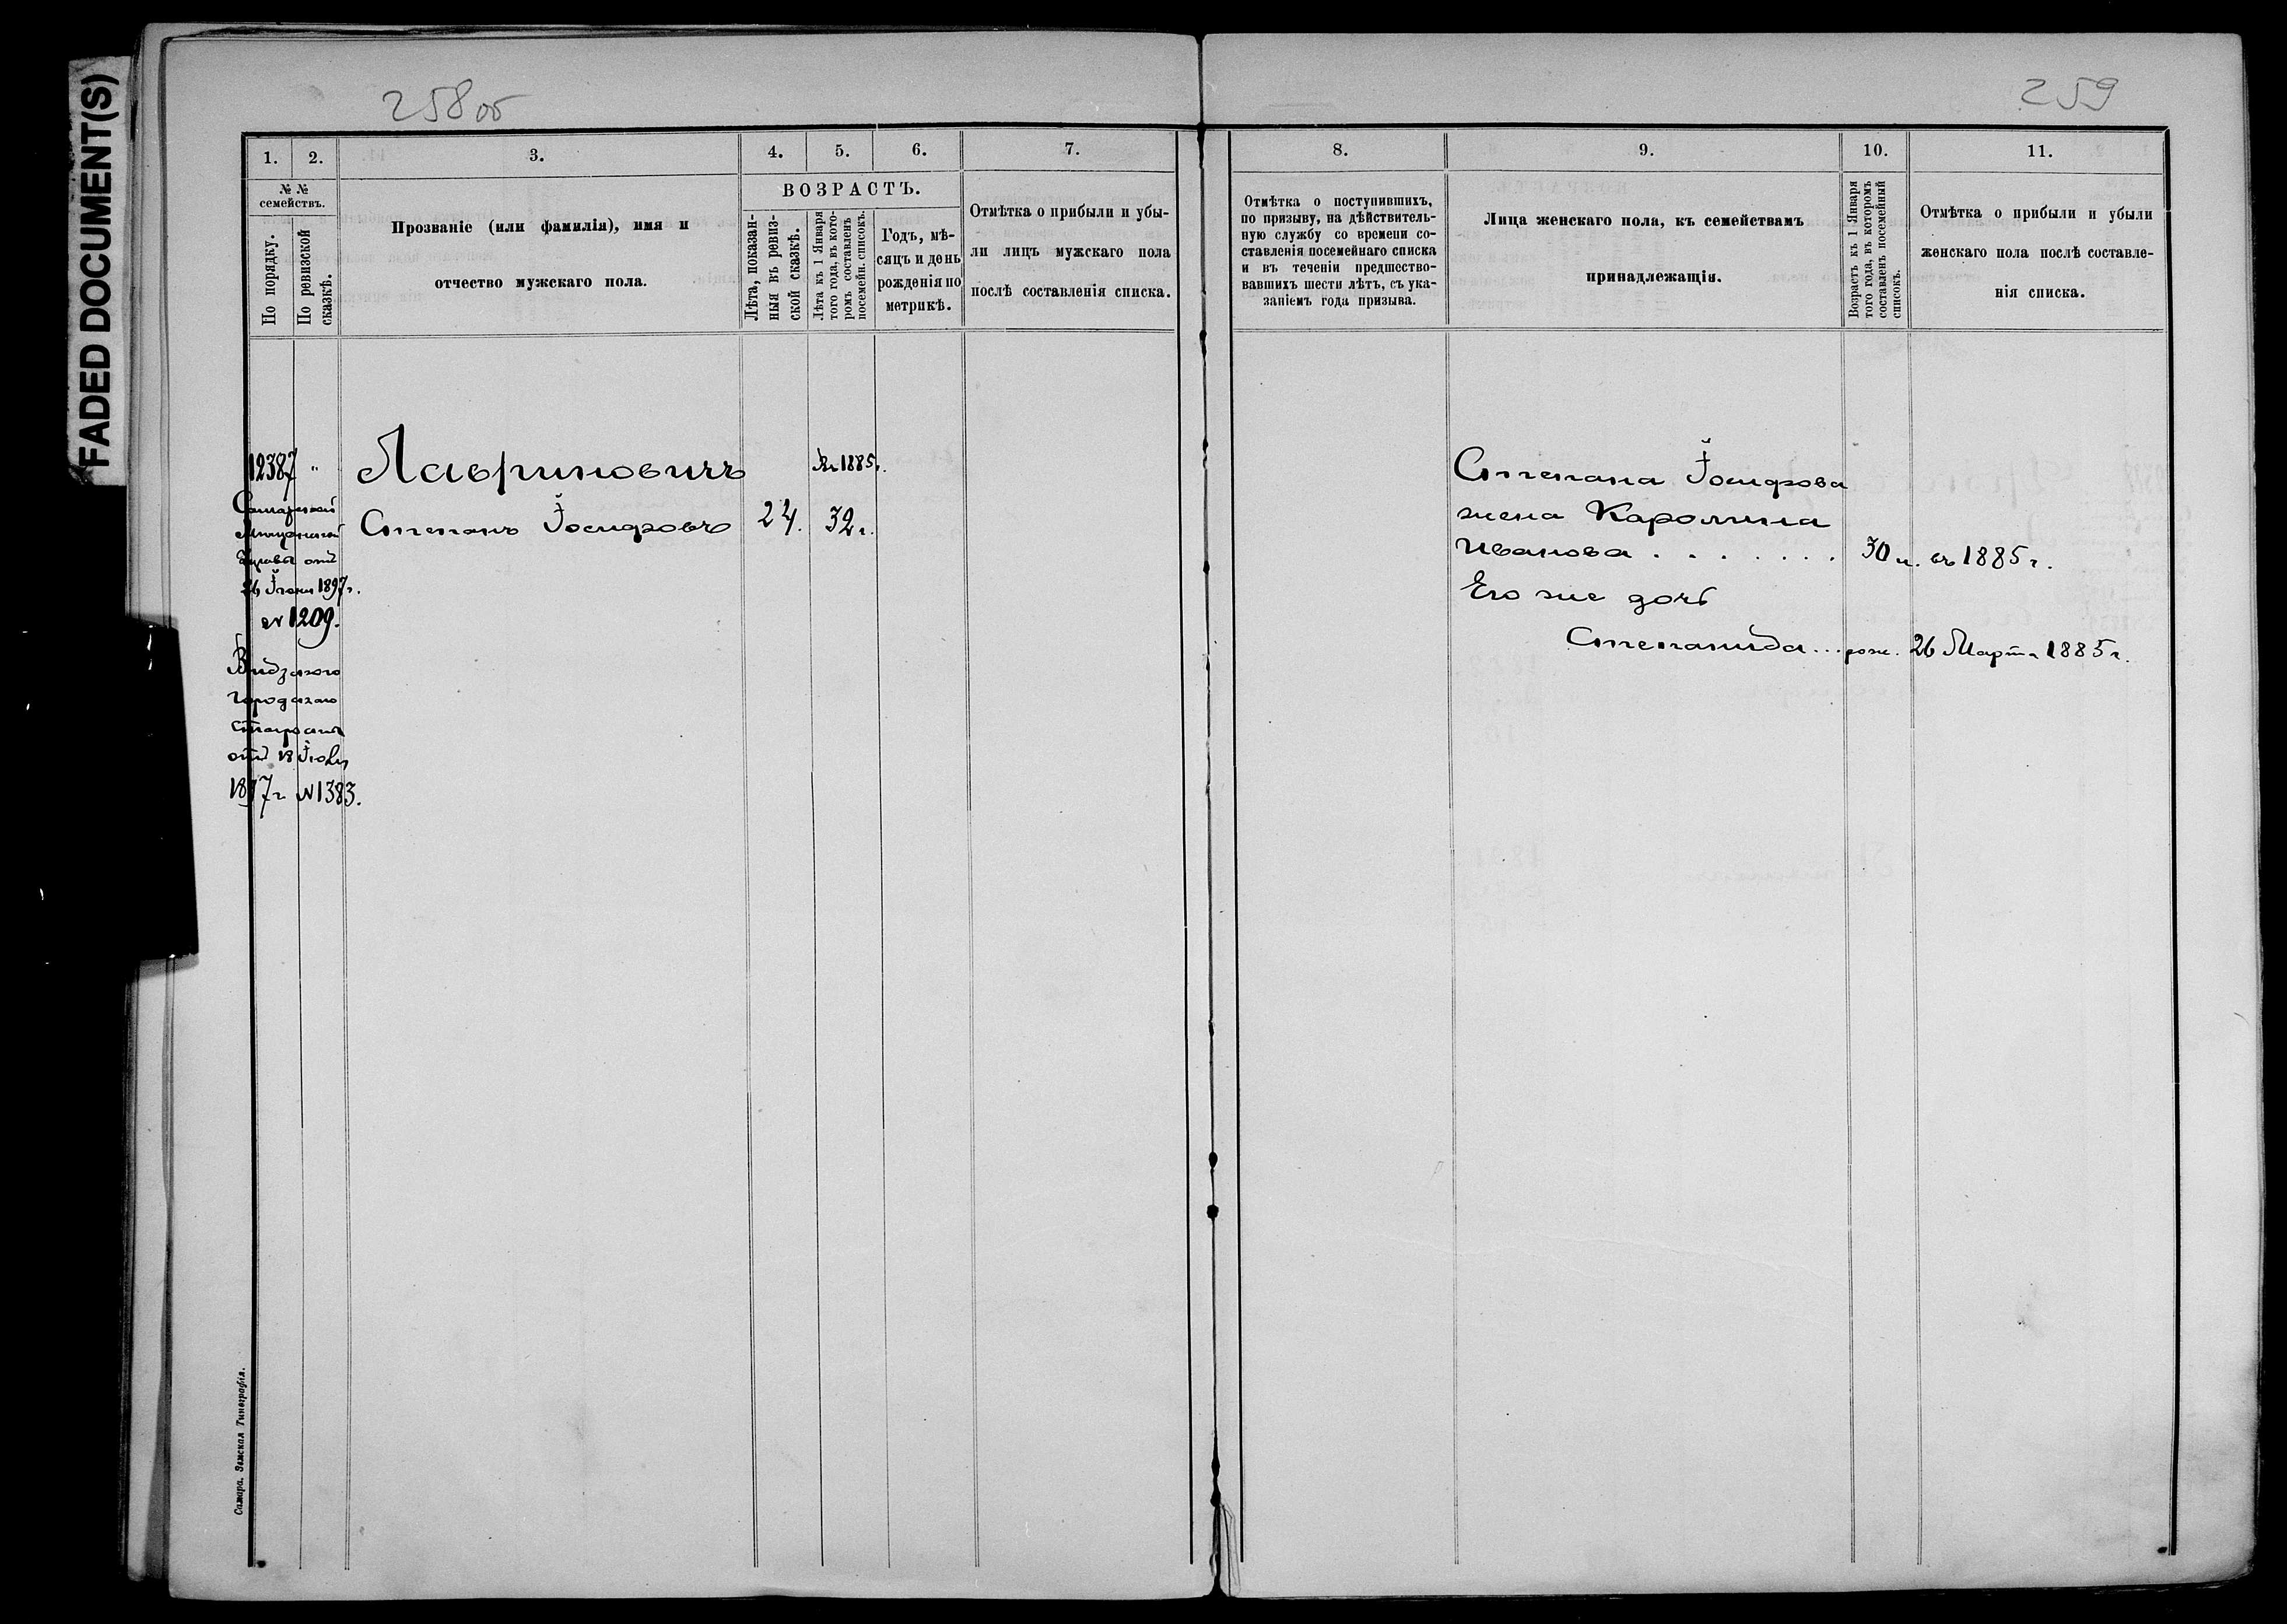 FADED DOCUMENT(S)
258 об
1.
2.
3.
4.
5.
6.
7.
№ №
семействъ.
По порядку.
По ревизской
сказкѣ.
Прозваніе (или фамилія), имя и
отчество мужскаго пола.
ВОЗРАСТЪ.
Лѣта, показан-
ныя въ ревиз-
ской сказкѣ.
Лѣта къ 1 Января
того года, въ кото-
ромъ составленъ
посемейн. списокъ.
Годъ, мѣ-
сяцъ и день
рожденія по
метрикѣ.
Отмѣтка о прибыли и убы-
ли лицъ мужскаго пола
послѣ составленія списка.
12387 "
Лавриновичъ
1885 г.
Степанъ Іосифовъ
24.
32 г.
Самарской
Мѣщанской
Управы отъ
26 Іюня 1897 г.
№ 1209.
Видзскаго
Городскаго
Старосты
отъ 18 Іюля
1897 г. № 1383.
Самара. Земская Типографія.
259
8.
9.
10.
11.
Отмѣтка о поступившихъ,
по призыву, на дѣйствитель-
ную службу со времени со-
ставленія посемейнаго списка
и въ теченіи предшество-
вавшихъ шести лѣтъ, съ ука-
заніемъ года призыва.
Лица женскаго пола, къ семействамъ
принадлежащія.
Возрастъ къ 1 Января
того года, въ которомъ
составленъ посемейный
списокъ.
Отмѣтка о прибыли и убыли
женскаго пола послѣ составле-
нія списка.
Степана Іосифова
жена Каролина
Иванова . . . . . . . 30 л. въ 1885 г.
Его же дочь
Степанида... рож. 26 Марта 1885 г.